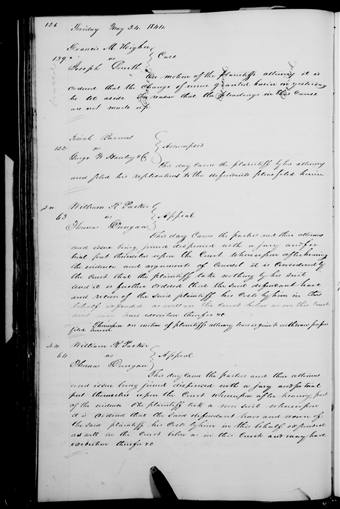 126
Friday May 24. 1844
Francis M. Wright
179 vs } Case
Joseph Smith
On motion of the Plaintiffs attorney it is
ordered that the change of venue granted herein on yesterday
be set aside for reason that the pleadings in this cause
are not made up
vs } Assumpsit
This day came the plaintiff by his attorney
and filed his replications to the defendants pleas filed herein
William H Parker
63 vs } Appeal
Thomas Dungan
This day came the parties and their attorneys
and issue being joined dispensed with a jury and for
trial put themselves upon the Court Whereupon after hearing
the evidence and arguments of Counsel it is considered by
the Court that the plaintiff take nothing by his suit
And it is further ordered that the said defendant have
and recover of the said plaintiff his Costs by him in this
behalf expended as well in the Court below as in this Court
and may have execution therefor &c
Whereupon on motion of plaintiffs attorney
filed herein
William H Parker
64 vs } Appeal
Thomas Dungan
This day came the parties and their attorneys
and issue being joined dispensed with a jury and for trial
put themselves upon the Court Whereupon after hearing part
of the evidence the plaintiff took a non suit whereupon
it is ordered that the said defendant have and recover of
the said plaintiff his Costs by him in this behalf expended
as well in the Court below as in this Court and may have
execution therefor &c